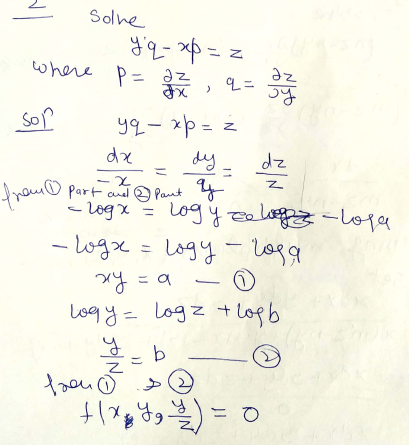 2
Solve
y'q - xp = z
where P = ∂z/∂x , q = ∂z/∂y
solⁿ yq - xp = z
dx/-x = dy/y = dz/z
from ① Part and ② Part
- log x = log y - log a
- log x = log y - log a
xy = a — ①
log y = log z + log b
y/z = b — ②
from ① & ②
f(x, y, y/z) = 0